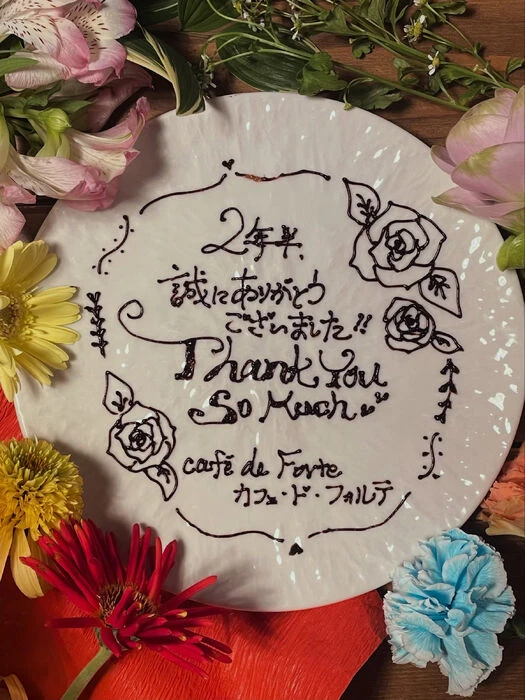 2年半、
誠にありがとう
ございました!!
Thank You
So Much
café de Forte
カフェ・ド・フォルテ